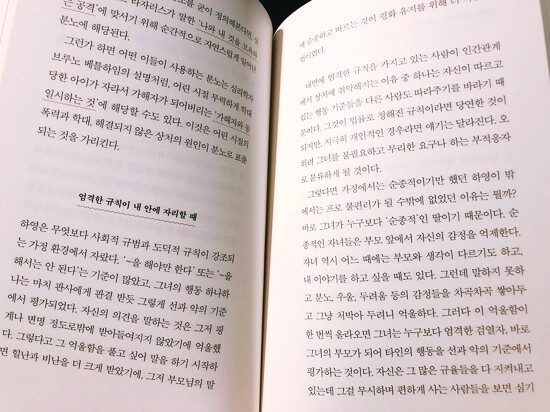 분노를 굳이 정의해본다면, 심
라자러스가 말한 '나와 내 것을 모욕한
공격'에 맞서기 위해 순간적으로 자연스럽게 일어난
분노에 해당된다.
그런가 하면 어떤 이들이 사용하는 분노는 심리학자
브루노 베틀하임의 설명처럼, 어린 시절 무력하게 학대
당한 아이가 자라서 가해자가 되어버리는 '가해자와 동
일시하는 것'에 해당할 수도 있다. 이것은 어린 시절의
폭력과 학대, 해결되지 않은 상처의 원인이 분노로 표출
되는 것을 가리킨다.
엄격한 규칙이 내 안에 자리할 때
하영은 무엇보다 사회적 규범과 도덕적 규칙이 강조되
는 가정 환경에서 자랐다. '~을 해야만 한다' 또는 '~을
해서는 안 된다'는 기준이 많았고, 그녀의 행동 하나하
나는 마치 판사에게 판결 받듯 그렇게 선과 악의 기준
에서 평가되었다. 자신의 의견을 말하는 것은 그저 핑
계나 변명 정도로밖에 받아들여지지 않았기에 억울했
다. 그렇다고 그 억울함을 풀고 싶어 말을 하기 시작하
면 힐난과 비난을 더 크게 받았기에, 그저 부모님의 말
에 순종하고 따르는 것이 평화 유지를 위해 더
법이었다.
내면에 엄격한 규칙을 가지고 있는 사람이 인간관계
에서 상처에 취약해지는 이유 중 하나는 자신이 따르고
있는 행동 기준들을 다른 사람도 따라주기를 바라기 때
문이다. 그것이 법률로 정해진 규칙이라면 당연한 것이
되지만, 지극히 개인적인 경우라면 얘기는 달라진다. 오
히려 그녀를 불필요하고 무리한 요구나 하는 부적응자
로 분류하게 될 것이다.
그렇다면 가정에서는 순종적이기만 했던 하영이 밖
에서는 프로 불편러가 될 수밖에 없었던 이유는 뭘까?
바로 그녀가 누구보다 '순종적'인 딸이기 때문이다. 순
종적인 자녀들은 부모 앞에서 자신의 감정을 억제한다.
자녀 역시 어느 때에는 부모와 생각이 다르기도 하고,
내 이야기를 하고 싶을 때도 있다. 그런데 말하지 못하
고 분노, 우울, 두려움 등의 감정들을 차곡차곡 쌓아두
고 그냥 처박아 두려니 억울하다. 그러다 그 억울함이
한 번씩 올라오면 그녀는 누구보다 엄격한 검열자, 바로
그녀의 부모가 되어 타인의 행동을 선과 악의 기준에서
평가하는 것이다. 자신은 그 많은 규율들을 다 지켜내고
있는데 그걸 무시하며 편하게 사는 사람들을 보면 심기